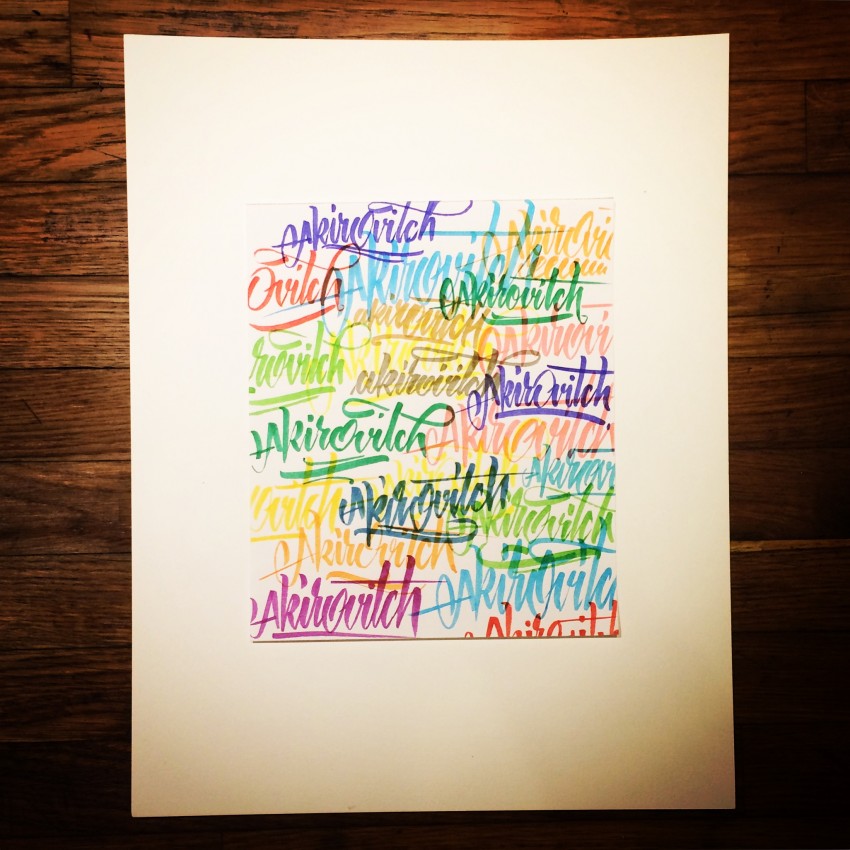 Akirovitch
Akirovi
Ovitch
Akirovitch
Akirovitch
akirovitch
Akirovi
rovitch
akirovitch
Akirovitch
Akirovitch
Akirovitch
Akirov
Akirovitch
Akirovitch
Akirovitch
Akirovitch
Akirovitc
Akirovitch